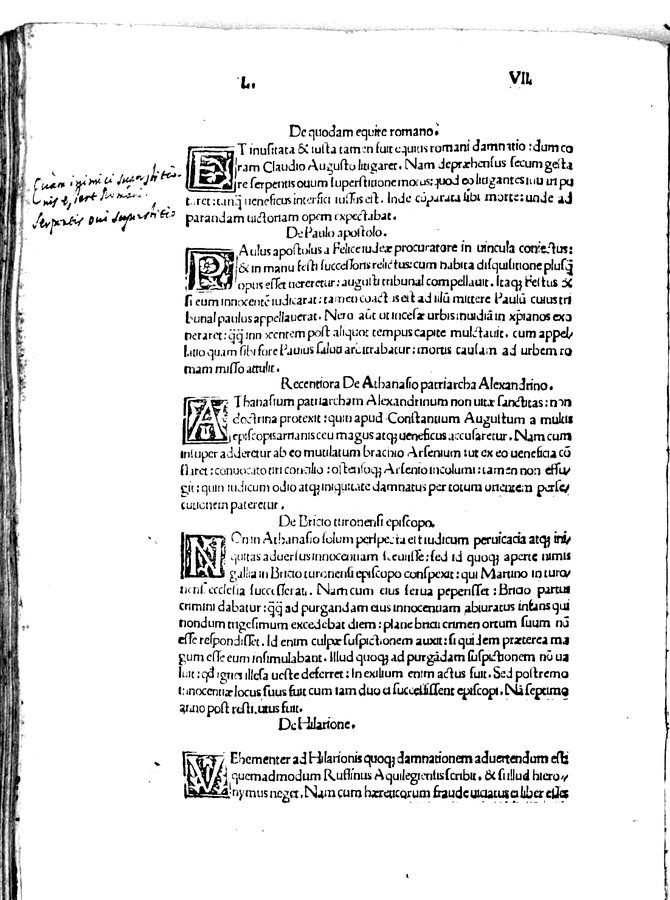 L. VII.
De quodam equite romano.
ET inusitata & iusta tamen fuit equitis romani damnatio: dum co
ram Claudio Augusto litigaret. Nam depræhensus secum gesta
re serpentis ouum superstitione motus: quod eo litigantes
interfici iussus est. Inde sibi morte: unde ad
parandam uictoriam opem expectabat.
De Paulo apostolo.
PAulus apostolus a Felice iudex procuratore in uincula coniectus:
& in manu Festi successoris relictus: cum habita disquisitione plusq̃
opus esset uereretur: augusti tribunal compellauit. Itaq; Festus &
si eum innocentē iudicarat: tamen coact is est ad illū mittere Paulū cuius tri
bunal paulus appellauerat. Nero aūt ut incēsæ urbis inuidiā in xpianos exo
neraret: innocentem post aliquot tempus capite mulctauit. cum appel/
latio quam sibi fore Paulus saluti arbitrabatur: mortis causam ad urbem ro
mam misso attulit.
Recentiora De Athanasio patriarcha Alexandrino.
AThanasium patriarcham Alexandrinum non uitæ sanctitas: non
doctrina protexit: quin apud Constantium Augustum a multis
episcopis arrianis ceu magus atq; ueneficus accusaretur. Nam cum
insuper adderetur ab eo mutilatum brachio Arsenium ut ex eo ueneficia cō
flaret: conuocato concilio: ostensoq; Arsenio incolumi: tamen non effu/
git: quin iudicum odio atq; iniquitate damnatus per totum orientem perse/
cutionem pateretur.
De Bricio turonensi episcopo.
NOn in Athanasio solum perspecta est iudicum peruicacia atq; ini/
quitas aduersus innocentiam seuisse: sed id quoq; aperte nimis
gallia in Bricio turonensi episcopo conspexit: qui Martino in turo/
nensi ecclesia successerat. Nam cum eius serua peperisset: Bricio partus
crimini dabatur: ad purgandam eius innocentiam abiuratus infans qui
nondum trigesimum excedebat diem: plane brici crimen ortum suum nō
esse respondisset. Id enim culpæ suspictionem auxit: si quidem præterea ma
gum esse eum insimulabant. Illud quoq; ad purgādam suspictionem nō ua
luit: ignes illesa ueste deferret: In exilium enim actus fuit. Sed postremo
innocentiæ locus suus fuit cum iam duo ei successissent episcopi. Nā septimo
anno post restitutus fuit.
De Hilarione.
VEhementer ad Hilarionis quoq; damnationem aduertendum est:
quemadmodum Ruffinus Aquilegientis scribit. & si illud hiero/
nymus neget. Nam cum hæreticorum fraude uitiatus ei liber esset